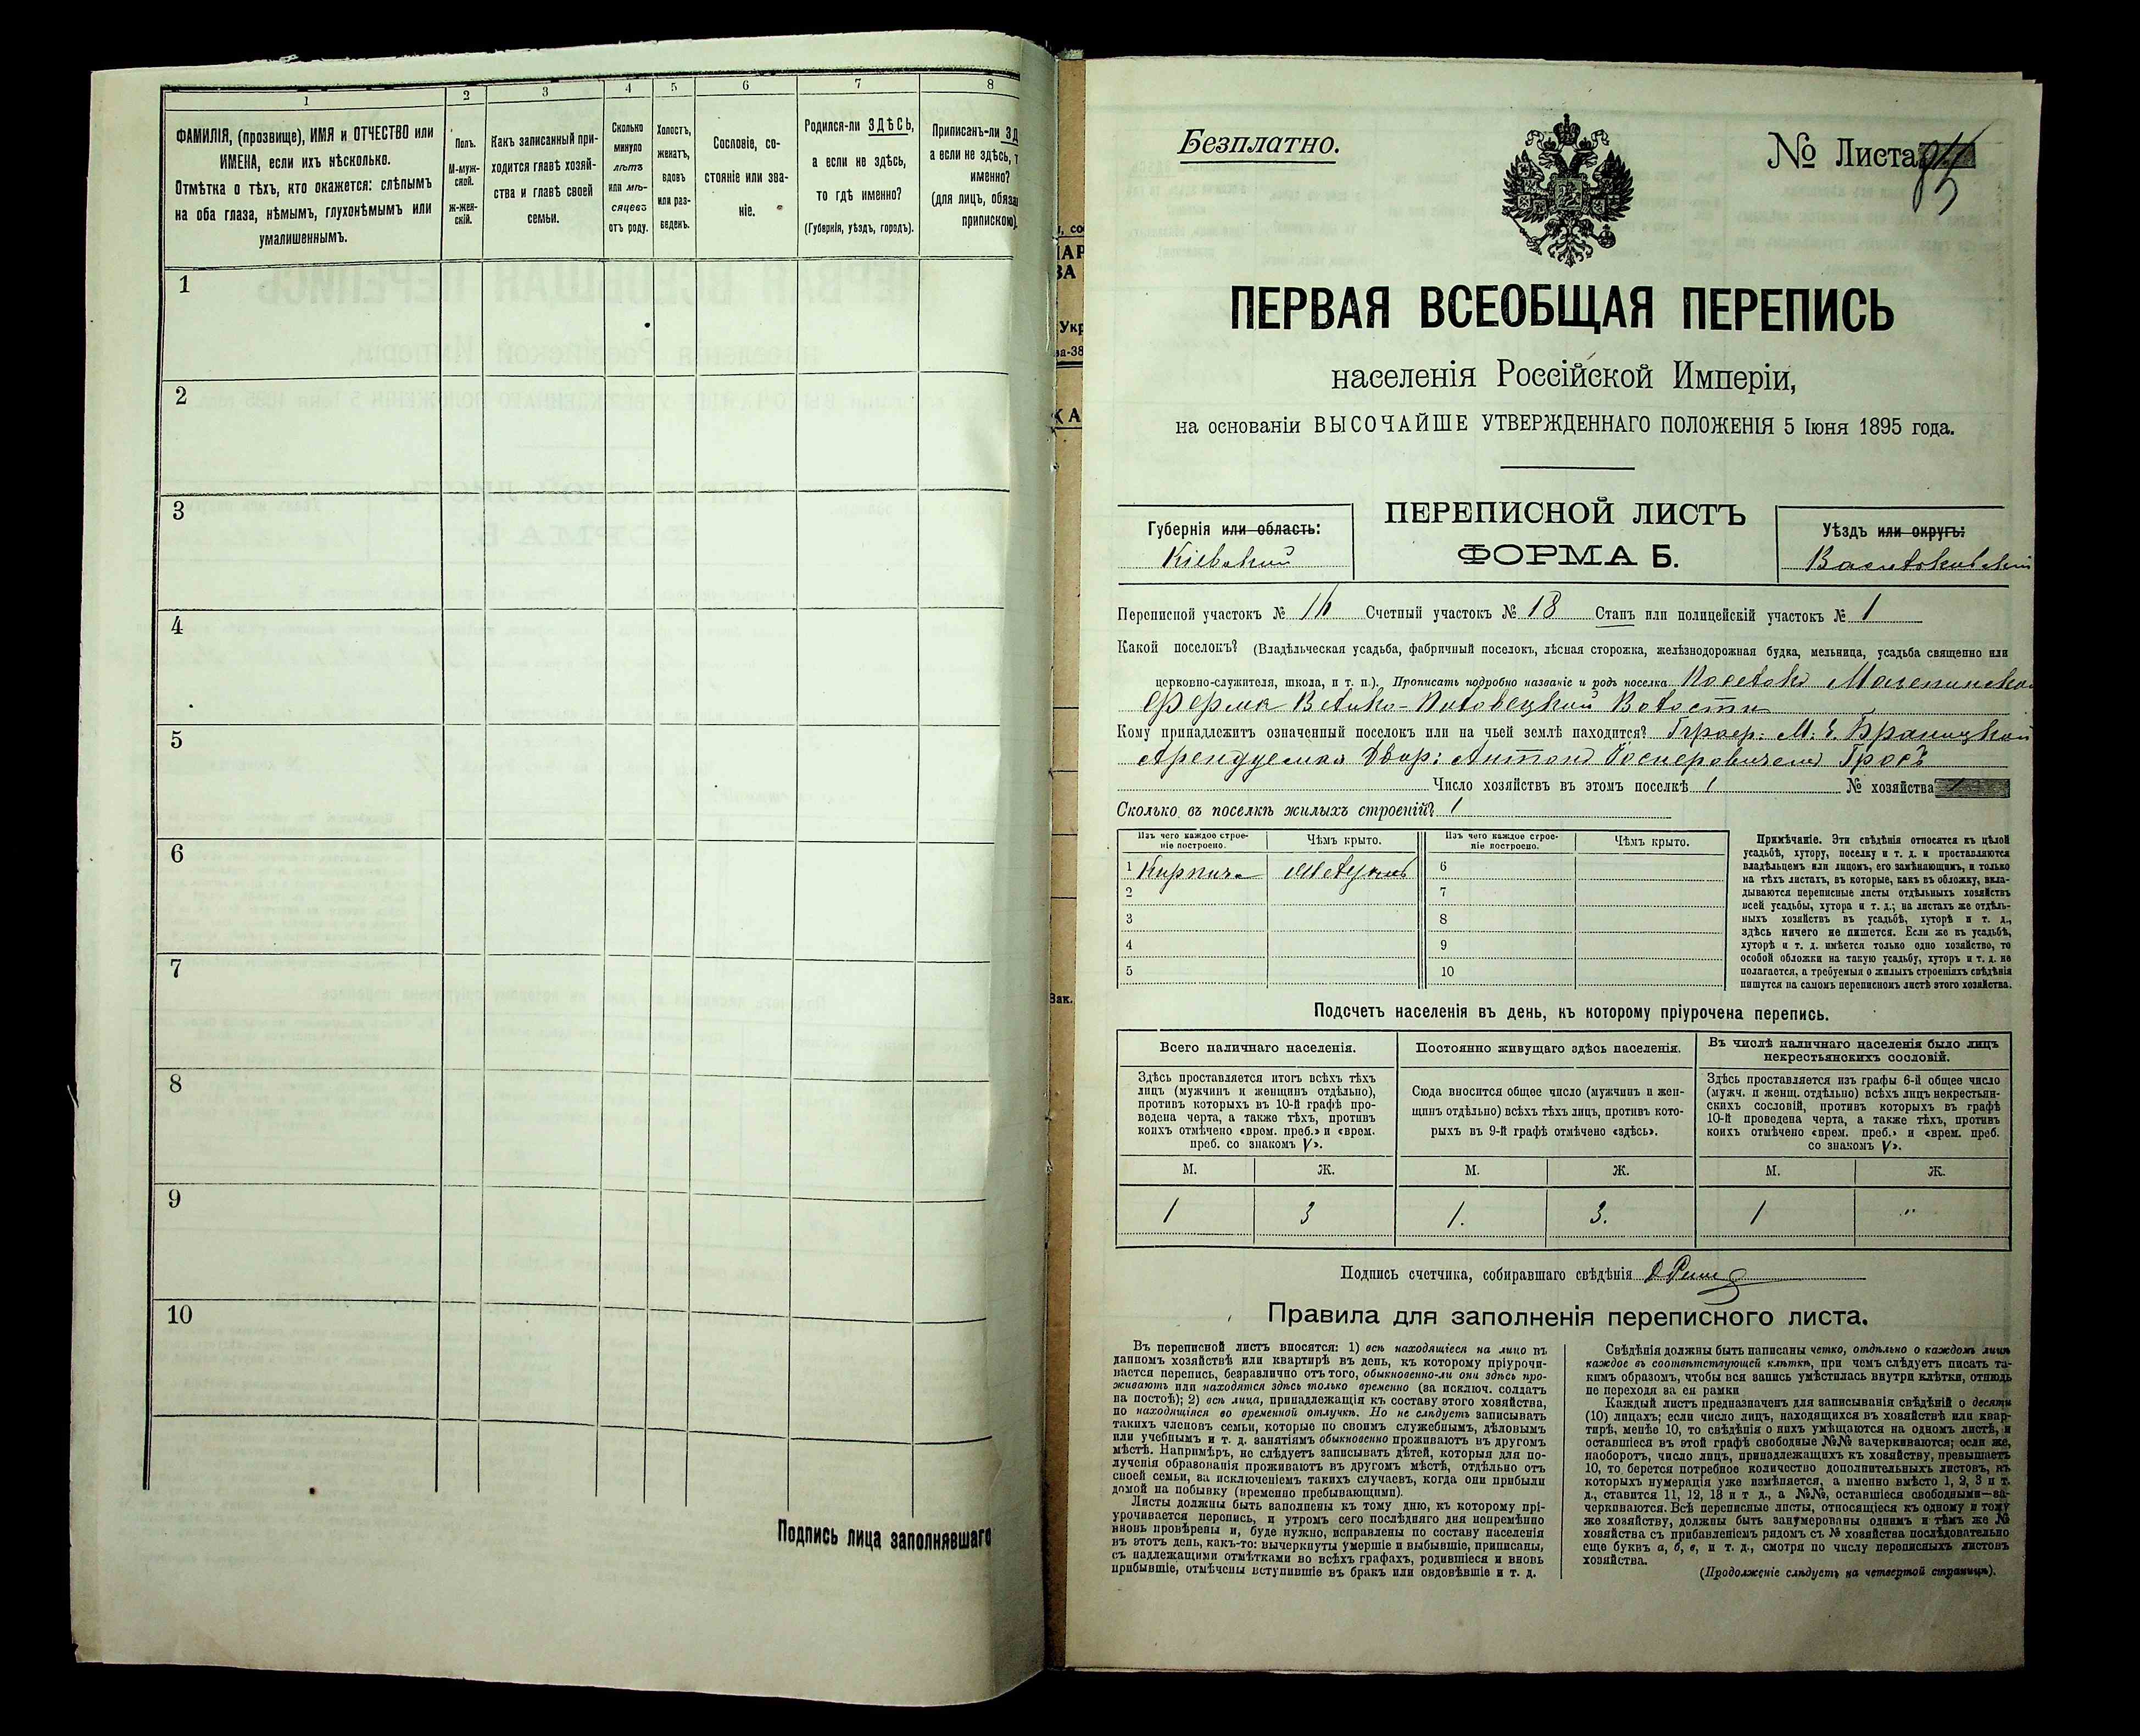 1 2 3 4 5 6 7 8
ФАМИЛІЯ, (прозвище), ИМЯ и ОТЧЕСТВО или
ИМЕНА, если ихъ нѣсколько.
Отмѣтка о тѣхъ, кто окажется: слѣпымъ
на оба глаза, нѣмымъ, глухонѣмымъ или
умалишеннымъ.
Полъ.
М-муж-
ской.
Ж-жен-
скій.
Какъ записанный при-
ходится главѣ хозяй-
ства и главѣ своей
семьи.
Сколько
минуло
лѣтъ
или мѣ-
сяцевъ
отъ роду.
Холостъ,
женатъ,
вдовъ
или раз-
веденъ.
Сословіе, со-
стояніе или зва-
ніе.
Родился-ли ЗДѢСЬ,
а если не здѣсь,
то гдѣ именно?
(Губернія, уѣздъ, городъ).
Приписанъ-ли ЗД
а если не здѣсь, т
именно?
(для лицъ, обяза
припискою).
1
2
3
4
5
6
7
8
9
10
Подпись лица заполнявшаго
Безплатно.
№ Листа 85
ПЕРВАЯ ВСЕОБЩАЯ ПЕРЕПИСЬ
населенія Россійской Имперіи,
на основаніи ВЫСОЧАЙШЕ УТВЕРЖДЕННАГО ПОЛОЖЕНІЯ 5 Іюня 1895 года.
Губернія или область:
Кіевской
ПЕРЕПИСНОЙ ЛИСТЪ
ФОРМА Б.
Уѣздъ или округъ:
Васильковскій
Переписной участокъ № 16 Счетный участокъ № 18 Станъ или полицейскій участокъ № 1
Какой поселокъ? (Владѣльческая усадьба, фабричный поселокъ, лѣсная сторожка, желѣзнодорожная будка, мельница, усадьба священно или
церковно-служителя, школа, и т. п.). Прописать подробно названіе и родъ поселка Поселокъ
Ферма Велико-Половецкой Волости
Кому принадлежитъ означенный поселокъ или на чьей землѣ находится? М. Е. Браницкой
Арендуемая Двор: Антонъ Гросъ
Число хозяйствъ въ этомъ поселкѣ 1 № хозяйства 1
Сколько въ поселкѣ жилыхъ строеній? 1
Изъ чего каждое строе-
ніе построено.
Чѣмъ крыто.
Изъ чего каждое строе-
ніе построено.
Чѣмъ крыто.
1 Кирпича 6
2 7
3 8
4 9
5 10
Примѣчаніе. Эти свѣдѣнія относятся къ цѣлой
усадьбѣ, хутору, поселку и т. д. и проставляются
владѣльцемъ или лицомъ, его замѣняющимъ, и только
на тѣхъ листахъ, въ которые, какъ въ обложку, вкла-
дываются переписные листы отдѣльныхъ хозяйствъ
всей усадьбы, хутора и т. д.; на листахъ же отдѣль-
ныхъ хозяйствъ въ усадьбѣ, хуторѣ и т. д.,
здѣсь ничего не пишется. Если же въ усадьбѣ,
хуторѣ и т. д. имѣется только одно хозяйство, то
особой обложки на такую усадьбу, хуторъ и т. д. не
полагается, а требуемыя о жилыхъ строеніяхъ свѣдѣнія
пишутся на самомъ переписномъ листѣ этого хозяйства.
Подсчетъ населенія въ день, къ которому пріурочена перепись.
Всего наличнаго населенія.
Здѣсь проставляется итогъ всѣхъ тѣхъ
лицъ (мужчинъ и женщинъ отдѣльно),
противъ которыхъ въ 10-й графѣ про-
ведена черта, а также тѣхъ, противъ
коихъ отмѣчено «врем. преб.» и «врем.
преб. со знакомъ V».
Постоянно живущаго здѣсь населенія.
Сюда вносится общее число (мужчинъ и жен-
щинъ отдѣльно) всѣхъ тѣхъ лицъ, противъ кото-
рыхъ въ 9-й графѣ отмѣчено «здѣсь».
Въ числѣ наличнаго населенія было лицъ
некрестьянскихъ сословій.
Здѣсь проставляется изъ графы 6-й общее число
(мужч. и женщ. отдѣльно) всѣхъ лицъ некрестьян-
скихъ сословій, противъ которыхъ въ графѣ
10-й проведена черта, а также тѣхъ, противъ
коихъ отмѣчено «врем. преб.» и «врем. преб.
со знакомъ V».
М. Ж. М. Ж. М. Ж.
1 3 1. 3. 1 "
Подпись счетчика, собиравшаго свѣдѣнія
Правила для заполненія переписного листа.
Въ переписной листъ вносятся: 1) всѣ находящіеся на лицо въ
данномъ хозяйствѣ или квартирѣ въ день, къ которому пріурочи-
вается перепись, безразлично отъ того, обыкновенно-ли они здѣсь про-
живаютъ или находятся здѣсь только временно (за исключ. солдатъ
на постоѣ); 2) всѣ лица, принадлежащія къ составу этого хозяйства,
но находящіяся во временной отлучкѣ. Но не слѣдуетъ записывать
такихъ членовъ семьи, которые по своимъ служебнымъ, дѣловымъ
или учебнымъ и т. д. занятіямъ обыкновенно проживаютъ въ другомъ
мѣстѣ. Напримѣръ, не слѣдуетъ записывать дѣтей, которыя для по-
лученія образованія проживаютъ въ другомъ мѣстѣ, отдѣльно отъ
своей семьи, за исключеніемъ такихъ случаевъ, когда они прибыли
домой на побывку (временно пребывающими).
Листы должны быть заполнены къ тому дню, къ которому прі-
урочивается перепись, и утромъ сего послѣдняго дня непремѣнно
вновь провѣрены и, буде нужно, исправлены по составу населенія
въ этотъ день, какъ-то: вычеркнуты умершіе и выбывшіе, приписаны,
съ надлежащими отмѣтками во всѣхъ графахъ, родившіеся и вновь
прибывшіе, отмѣчены вступившіе въ бракъ или овдовѣвшіе и т. д.
Свѣдѣнія должны быть написаны четко, отдѣльно о каждомъ лицѣ
каждое въ соотвѣтствующей клѣткѣ, при чемъ слѣдуетъ писать та-
кимъ образомъ, чтобы вся запись умѣстилась внутри клѣтки, отнюдь
не переходя за ея рамки
Каждый листъ предназначенъ для записыванія свѣдѣній о десяти
(10) лицахъ; если число лицъ, находящихся въ хозяйствѣ или квар-
тирѣ, менѣе 10, то свѣдѣнія о нихъ умѣщаются на одномъ листѣ, и
оставшіеся въ этой графѣ свободные №№ зачеркиваются; если же,
наоборотъ, число лицъ, принадлежащихъ къ хозяйству, превышаетъ
10, то берется потребное количество дополнительныхъ листовъ, въ
которыхъ нумерація уже измѣняется, а именно вмѣсто 1, 2, 3 и т.
д., ставится 11, 12, 13 и т д., а №№, оставшіеся свободными—за-
черкиваются. Всѣ переписные листы, относящіеся къ одному и тому
же хозяйству, должны быть занумерованы однимъ и тѣмъ же №
хозяйства съ прибавленіемъ рядомъ съ № хозяйства послѣдовательно
еще буквъ а, б, в, и т. д., смотря по числу переписныхъ листовъ
хозяйства.
(Продолженіе слѣдуетъ на четвертой страницѣ).